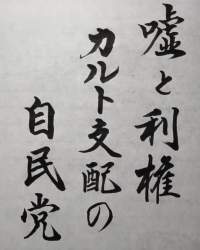 嘘と利権
カルト支配の
自民党